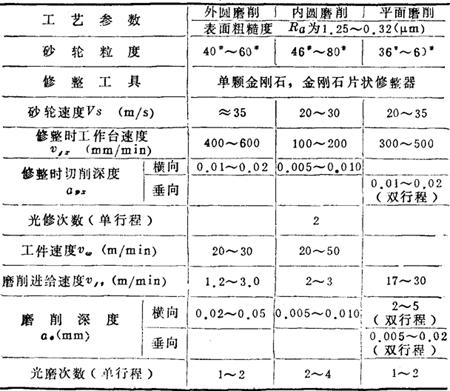 工艺参数 外圆磨削 内圆磨削 平面磨削
表面粗糙度 Ra为1.25~0.32(μm)
砂轮粒度 40#~60# 46#~80# 36#~6)#
修整工具 单颗金刚石，金刚石片状修整器
砂轮速度Vs (m/s) ≈35 20~30 20~35
修整时工作台速度 400~600 100~200 300~500
(mm/min)
修整时切削深度 横向 0.01~0.02 0.005~0.010
垂向 0.01~0.02
(双行程)
光修次数(单行程) 2
工件速度vω (m/min) 20~30 20~50
磨削进给速度 (m/min) 1.2~3.0 2~3 17~30
磨削深度 横向 0.02~0.05 0.005~0.010 2~5
(双行程)
(mm) 垂向 0.005~0.02
(双行程)
光磨次数(单行程) 1~2 2~4 1~2